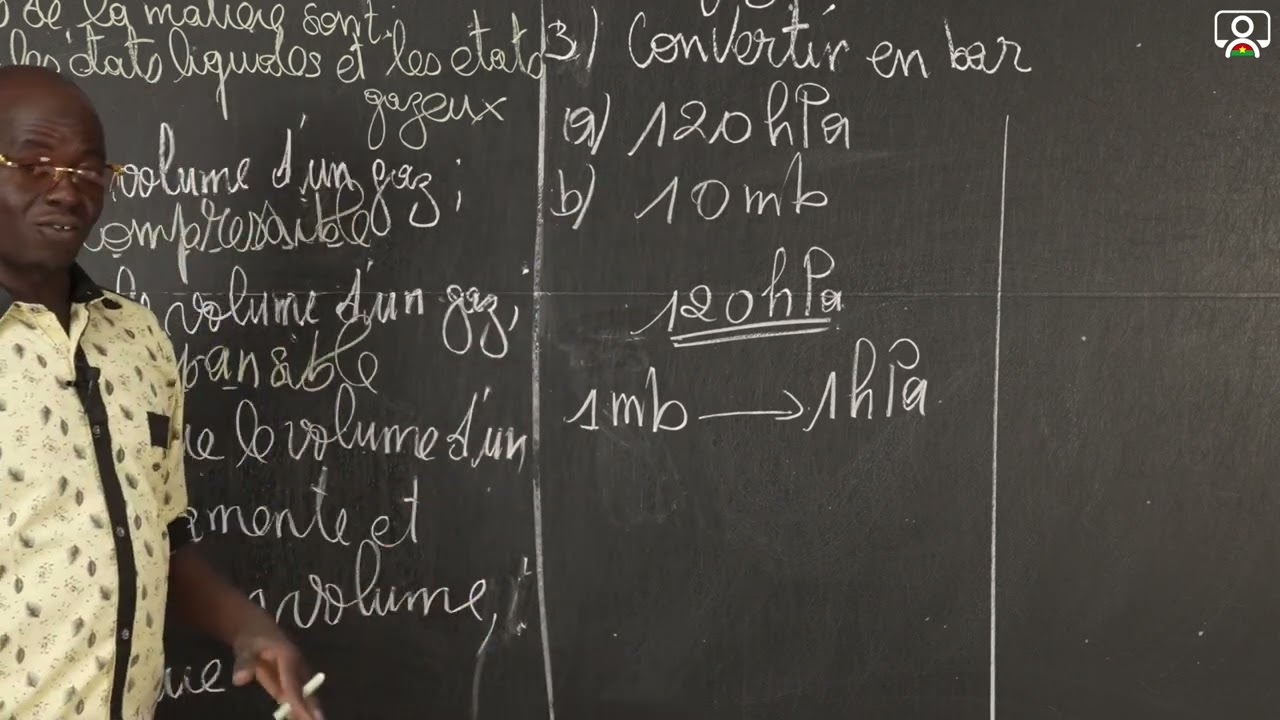 de la matière sont:
les états liquides et les etats
gazeux
volume d'un gaz;
compressible
le volume d'un gaz,
pansible
ue le volume d'un
amente et
volume,
que
3) Convertir en bar
a) 120hPa
b) 10mb
120hPa
1mb → 1hPa